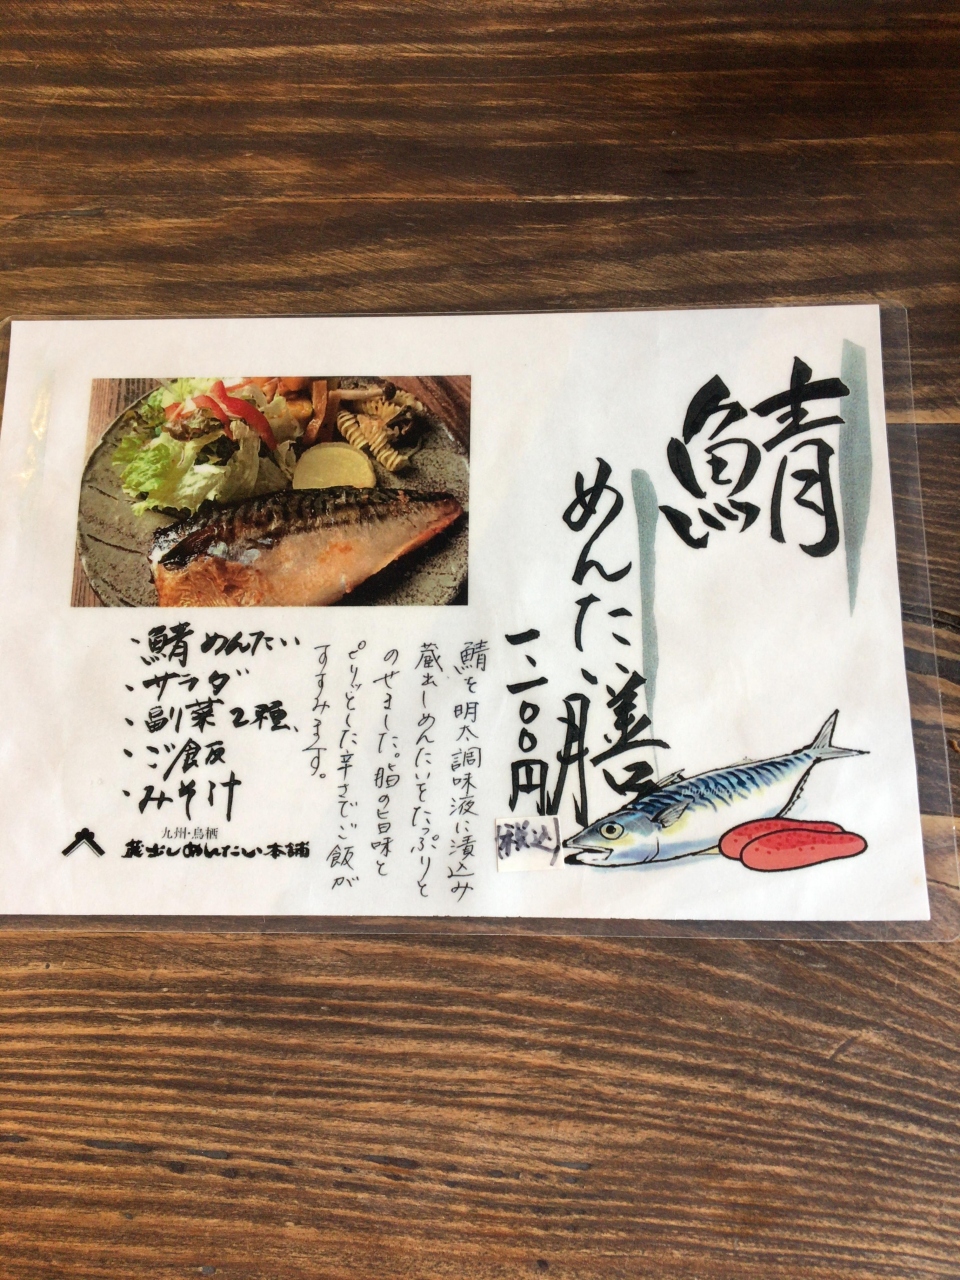 鯖
めんたい膳
一、一〇〇円
(税込)
鯖を明太調味液に漬込み
蔵出しめんたいをたっぷりと
のせました。脂の旨味と
ピリッとした辛さでご飯が
すすみます。
・鯖めんたい
・サラダ
・副菜2種
・ご飯
・みそ汁
九州・鳥栖
蔵出しめんたい本舗